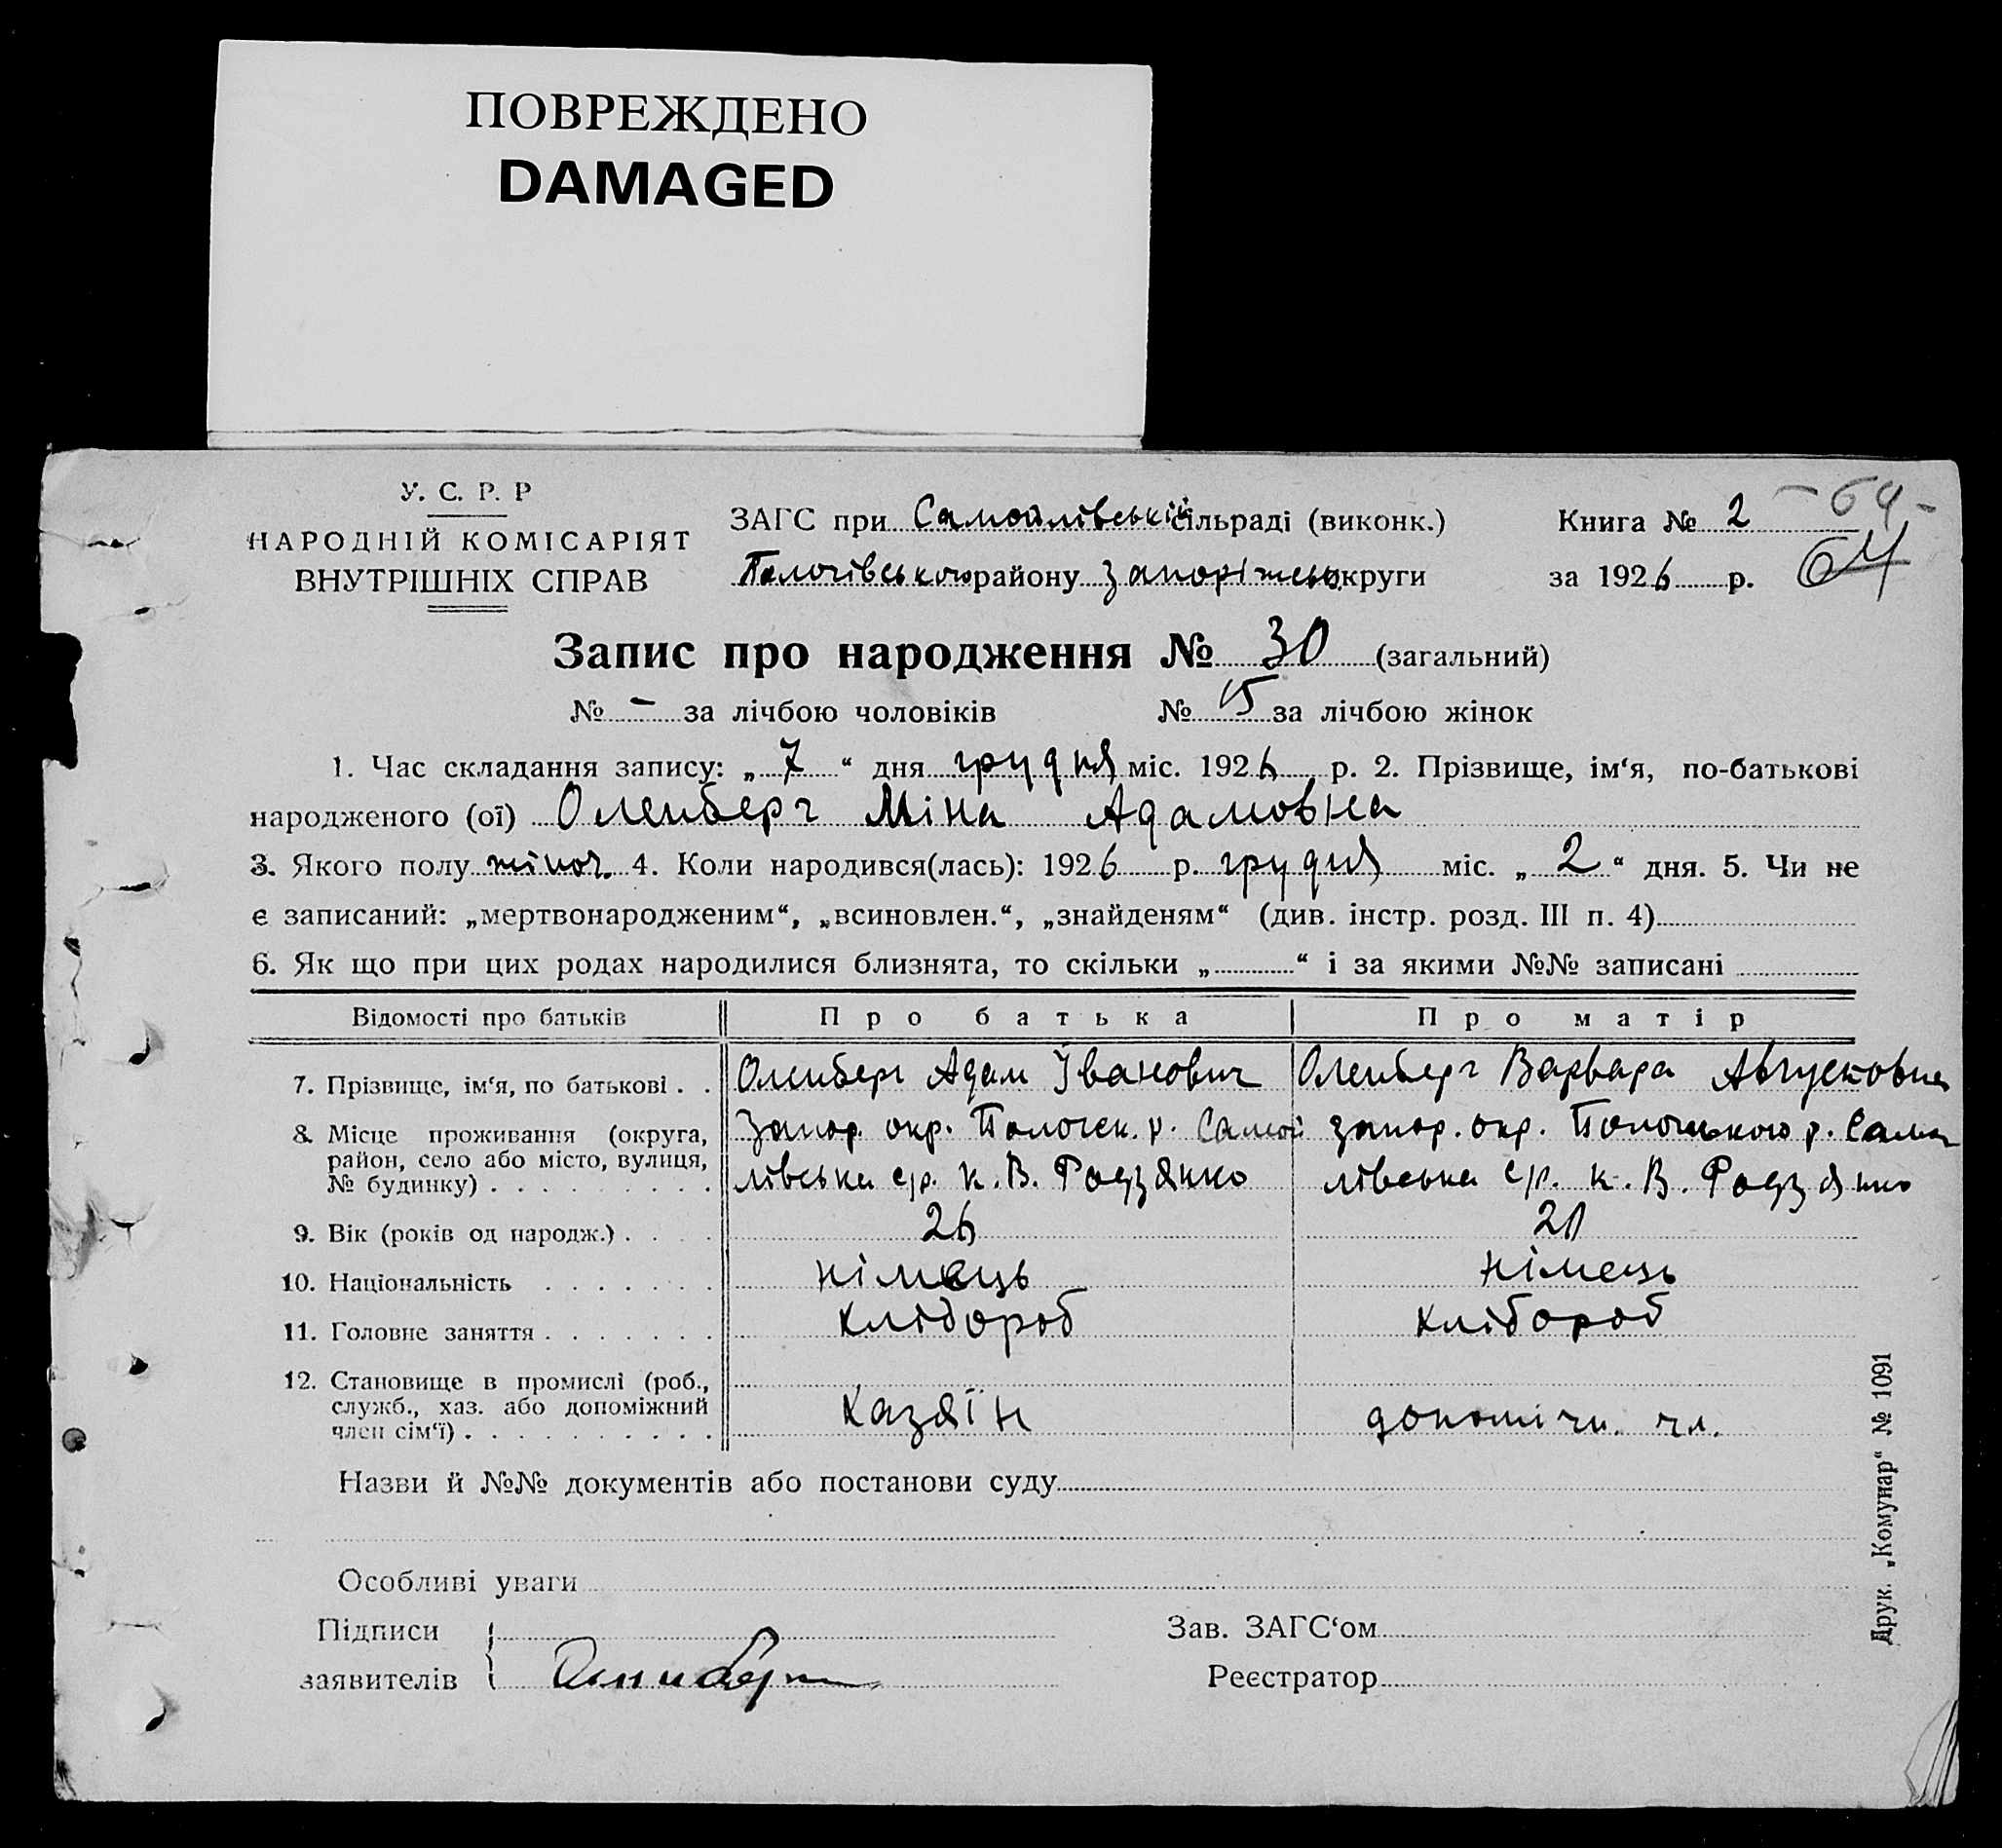 ПОВРЕЖДЕНО
DAMAGED
У. С. Р. Р
НАРОДНІЙ КОМІСАРІЯТ
ВНУТРІШНІХ СПРАВ
ЗАГС при Самойлівській сільраді (виконк.)
Пологівського району Запоріжськ. округи
Книга № 2
за 1926 р.
- 64 -
64
Запис про народження № 30 (загальний)
№ - за лічбою чоловіків № 15 за лічбою жінок
1. Час складання запису: „ 7 “ дня грудня міс. 1926 р. 2. Прізвище, ім‘я, по-батькові
народженого (ої) Оленберг Міна Адамовна
3. Якого полу жіноч. 4. Коли народився(лась): 1926 р. грудня міс. „ 2 “ дня. 5. Чи не
є записаний: „мертвонародженим“, „всиновлен.“, „знайденям“ (див. інстр. розд. III п. 4)
6. Як що при цих родах народилися близнята, то скільки „ “ і за якими №№ записані
Відомості про батьків Про батька Про матір
7. Прізвище, ім‘я, по батькові . . Оленберг Адам Іванович Оленберг Варвара Августовна
8. Місце проживання (округа, район, село або місто, вулиця, № будинку) . . . . . . . . .
Запор. окр. Пологск. р. Самой
лівська с/р. к. В. Родзянко
запор. окр. Пологського р. Самой
лівська с/р. к. В. Родзянко
9. Вік (років од народж.) . . . . 26 20
10. Національність . . . . . . . німець німець
11. Головне заняття . . . . . . . хлібороб хлібороб
12. Становище в промислі (роб.,
служб., хаз. або допоміжний
член сім‘ї) . . . . . . . . . . Хазяїн допоміжн. чл.
Назви й №№ документів або постанови суду
Особливі уваги
Підписи
заявителів
Зав. ЗАГС‘ом
Реєстратор
Друк. „Комунар“ № 1091